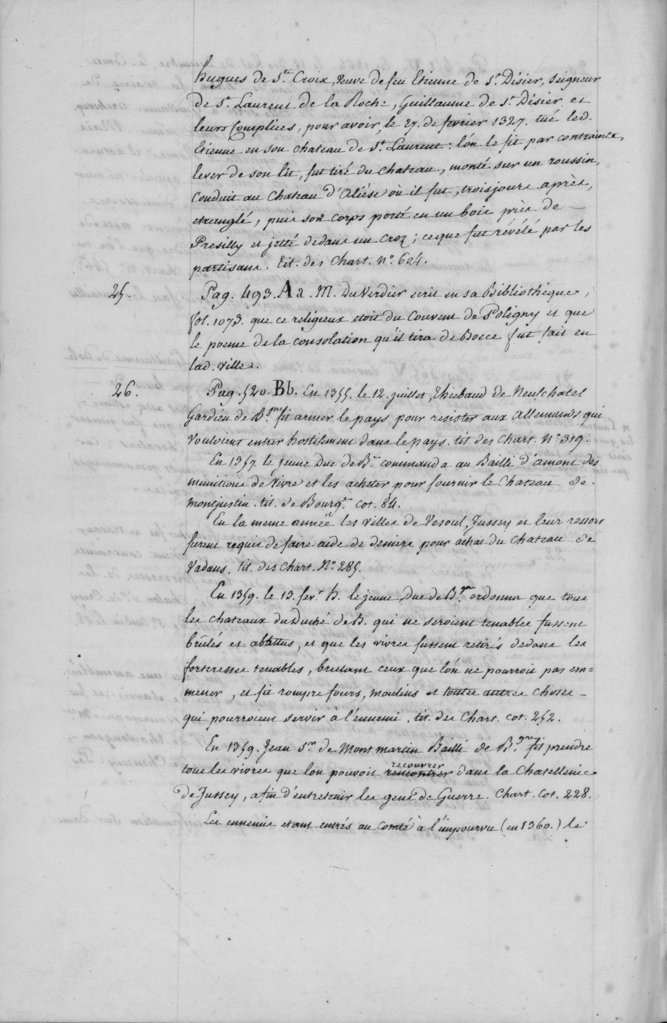 hugues de S.te Croix, veuve de feu Etienne de S.t Disier, Seigneur
de S.t Laurent de la Roche, Guillaume de S.t Disier et
leurs Complices, pour avoir le 27. de fevrier 1327. tué led.
Etienne en son chateau de S.t Laurent: l'on le fit par contrainte,
lever de son lit, fut tiré du Chateau, monté sur un roussin,
conduit au Chateau d'Alièse où il fut, trois jours après,
etranglé, puis son corps porté en un bois près de
Presilly et jetté dedans un Croz; ce que fut révélé par les
partisans. tit. des Chart. n.o 604.
25. Pag. 493. Aa. M. Du Verdier ecrit en sa Bibliothèque,
fol. 1073. que ce religieux etoit du Couvent de Poligny et que
le poeme de la consolation qu'il tira de Boece fut fait en
lad. ville.
26. Pag. 520. Bb. En 1355. le 12. juillet, Thiebaud de Neufchatel
Gardien de B.gne fit armer le pays pour resister aux Allemands qui
vouloient entrer hostilement dans le pays. tit. des Chart. N.o 319.
En 1357. le jeune Duc de B. commanda au Bailli d'amont des
munitions de vivre et les acheter pour fournir le Chateau de
Montjustin. tit. de Bourg. cot. 84.
En la meme année les villes de Vesoul, Jussey et leur ressort
furent requis de faire aide de deniers pour achat du Chateau de
Vadans. tit. des Chart. N.o 285.
En 1359. le 13. fev. le jeune Duc de B.gne ordonna que tous
les chateaux du Duché de B. qui ne seroient tenables fussent
brûlés et abbattus, et que les vivres fussent retirés dedans les
forteresses tenables, brulant ceux que l'on ne pourroit pas em=
mener, et fit rompre fours, moulins et toutes autres choses
qui pourroient servir à l'ennemi. tit. des Chart. cot. 252.
En 1359. Jean S.r de Montmartin Bailli de B.gne fit prendre
tous les vivres que l'on pouvoit rencontrer recouvrer dans la Chatellenie
de Jussey, afin d'entretenir les gens de Guerre. Chart. cot. 228.
Les ennemis etant entrés au Comté à l'impourvu (en 1360.) le